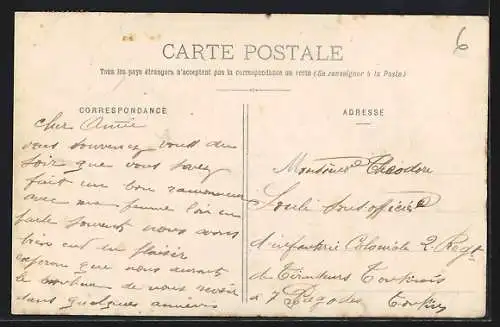 6
CARTE POSTALE
Tous les pays étrangers n'acceptent pas la correspondance au recto (Se renseigner à la Poste)
CORRESPONDANCE
ADRESSE
cher
vous souvenez vous du
soir que vous avez
fait un bon
avec ma femme l'on en
parle souvent nous avons
bien eut du plaisir
esperon que nous aurons
le bonheur de vous revoir
dans quelques années
Monsieur Théodore
sous officier
d'infanterie Coloniale 2 Regt
de Tirailleurs Tonkinois
a 7 Pagodes Tonkin